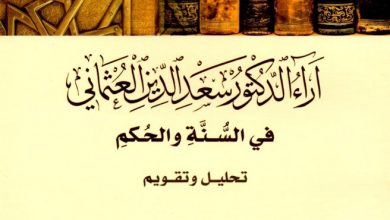 آرَاءُ الدُّكتُور سَعْدِ الدِّينِ العُثمَانِي
في السُّنَّةِ والحُكمِ
تحليل وتقويم